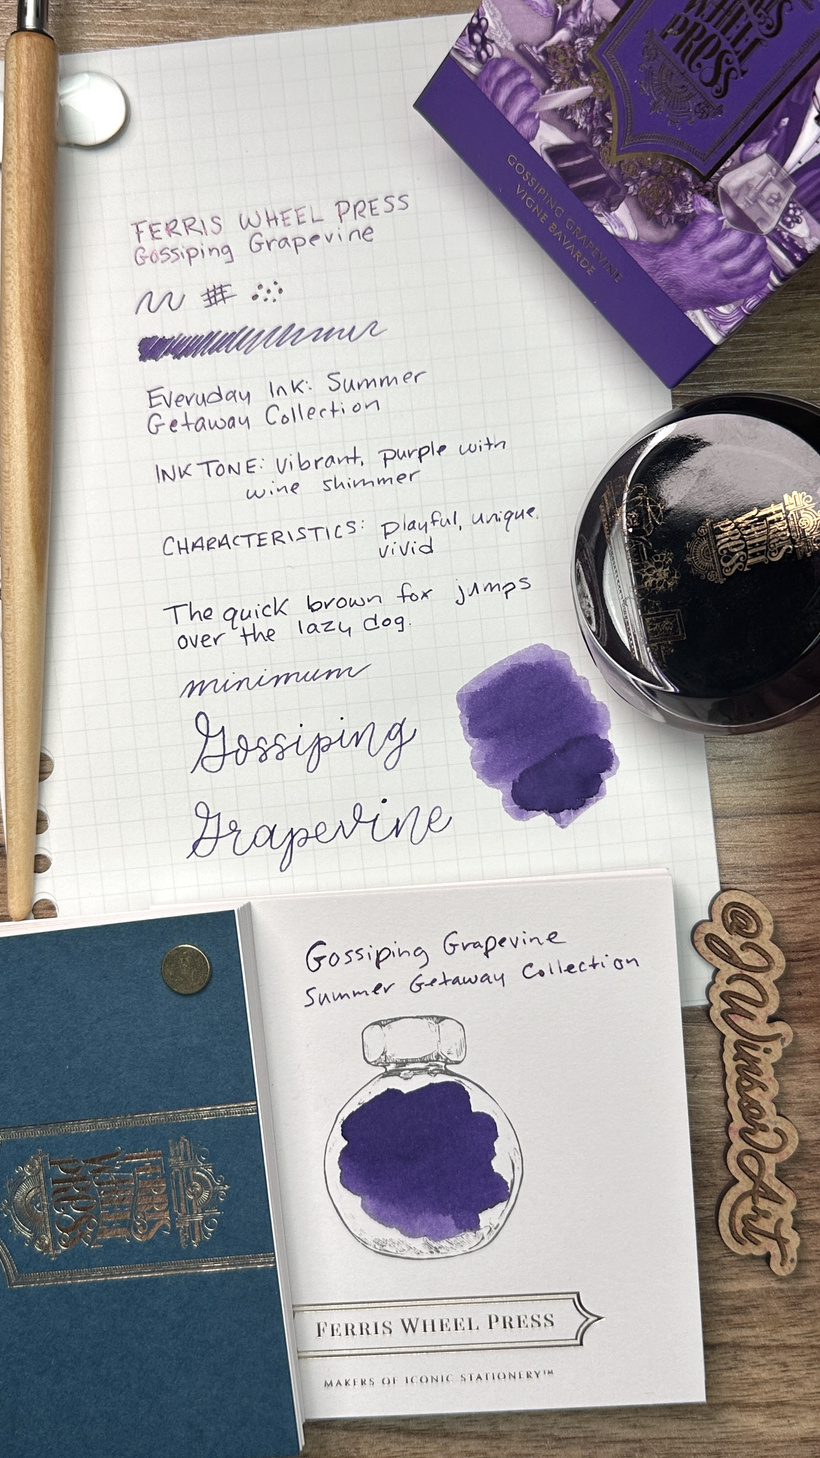 WHEEL
PRESS
GOSSIPING GRAPEVINE
VIGNE BAVARDE
FERRIS WHEEL PRESS
Gossiping Grapevine
Everyday Ink: Summer
Getaway Collection
INK TONE: vibrant, purple with
wine shimmer
CHARACTERISTICS: playful, unique,
vivid
The quick brown fox jumps
over the lazy dog.
minimum
Gossiping
Grapevine
FERRIS
WHEEL
PRESS
Gossiping Grapevine
Summer Getaway Collection
FERRIS
WHEEL
PRESS
FERRIS WHEEL PRESS
MAKERS OF ICONIC STATIONERY™
@JWinsorArt